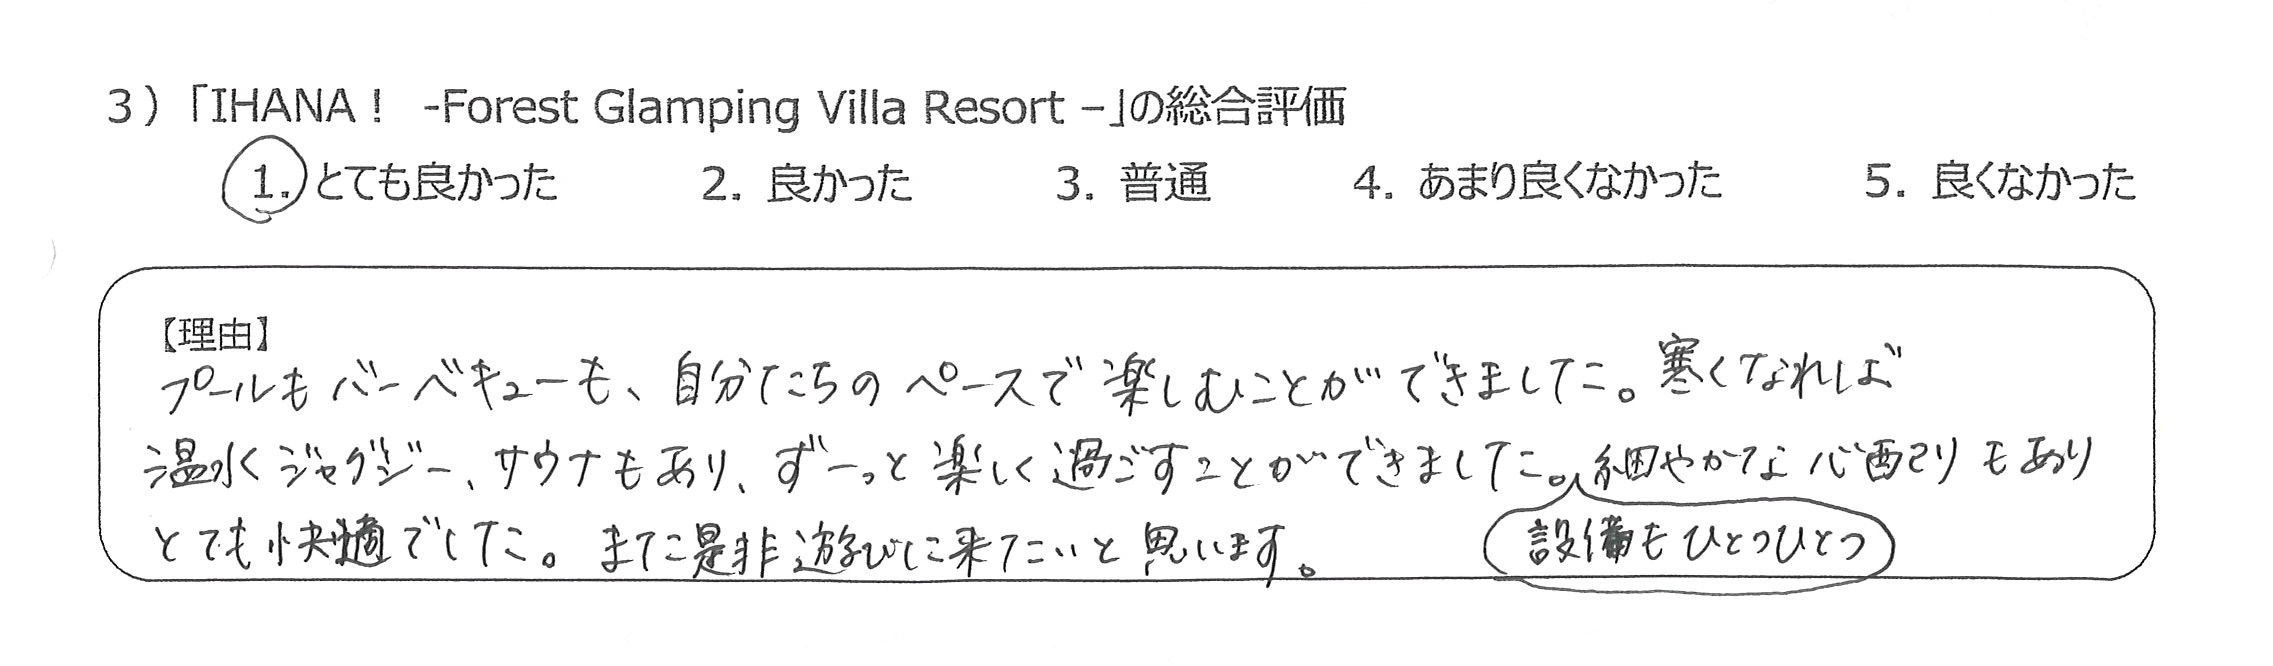 3）「IHANA！ -Forest Glamping Villa Resort –」の総合評価
1. とても良かった 2. 良かった 3. 普通 4. あまり良くなかった 5. 良くなかった
【理由】
プールもバーベキューも、自分たちのペースで楽しむことができました。寒くなれば
温水ジャグジー、サウナもあり、ずーっと楽しく過ごすことができました。細やかな心配りもあり
設備もひとつひとつ
とても快適でした。また是非遊びに来たいと思います。